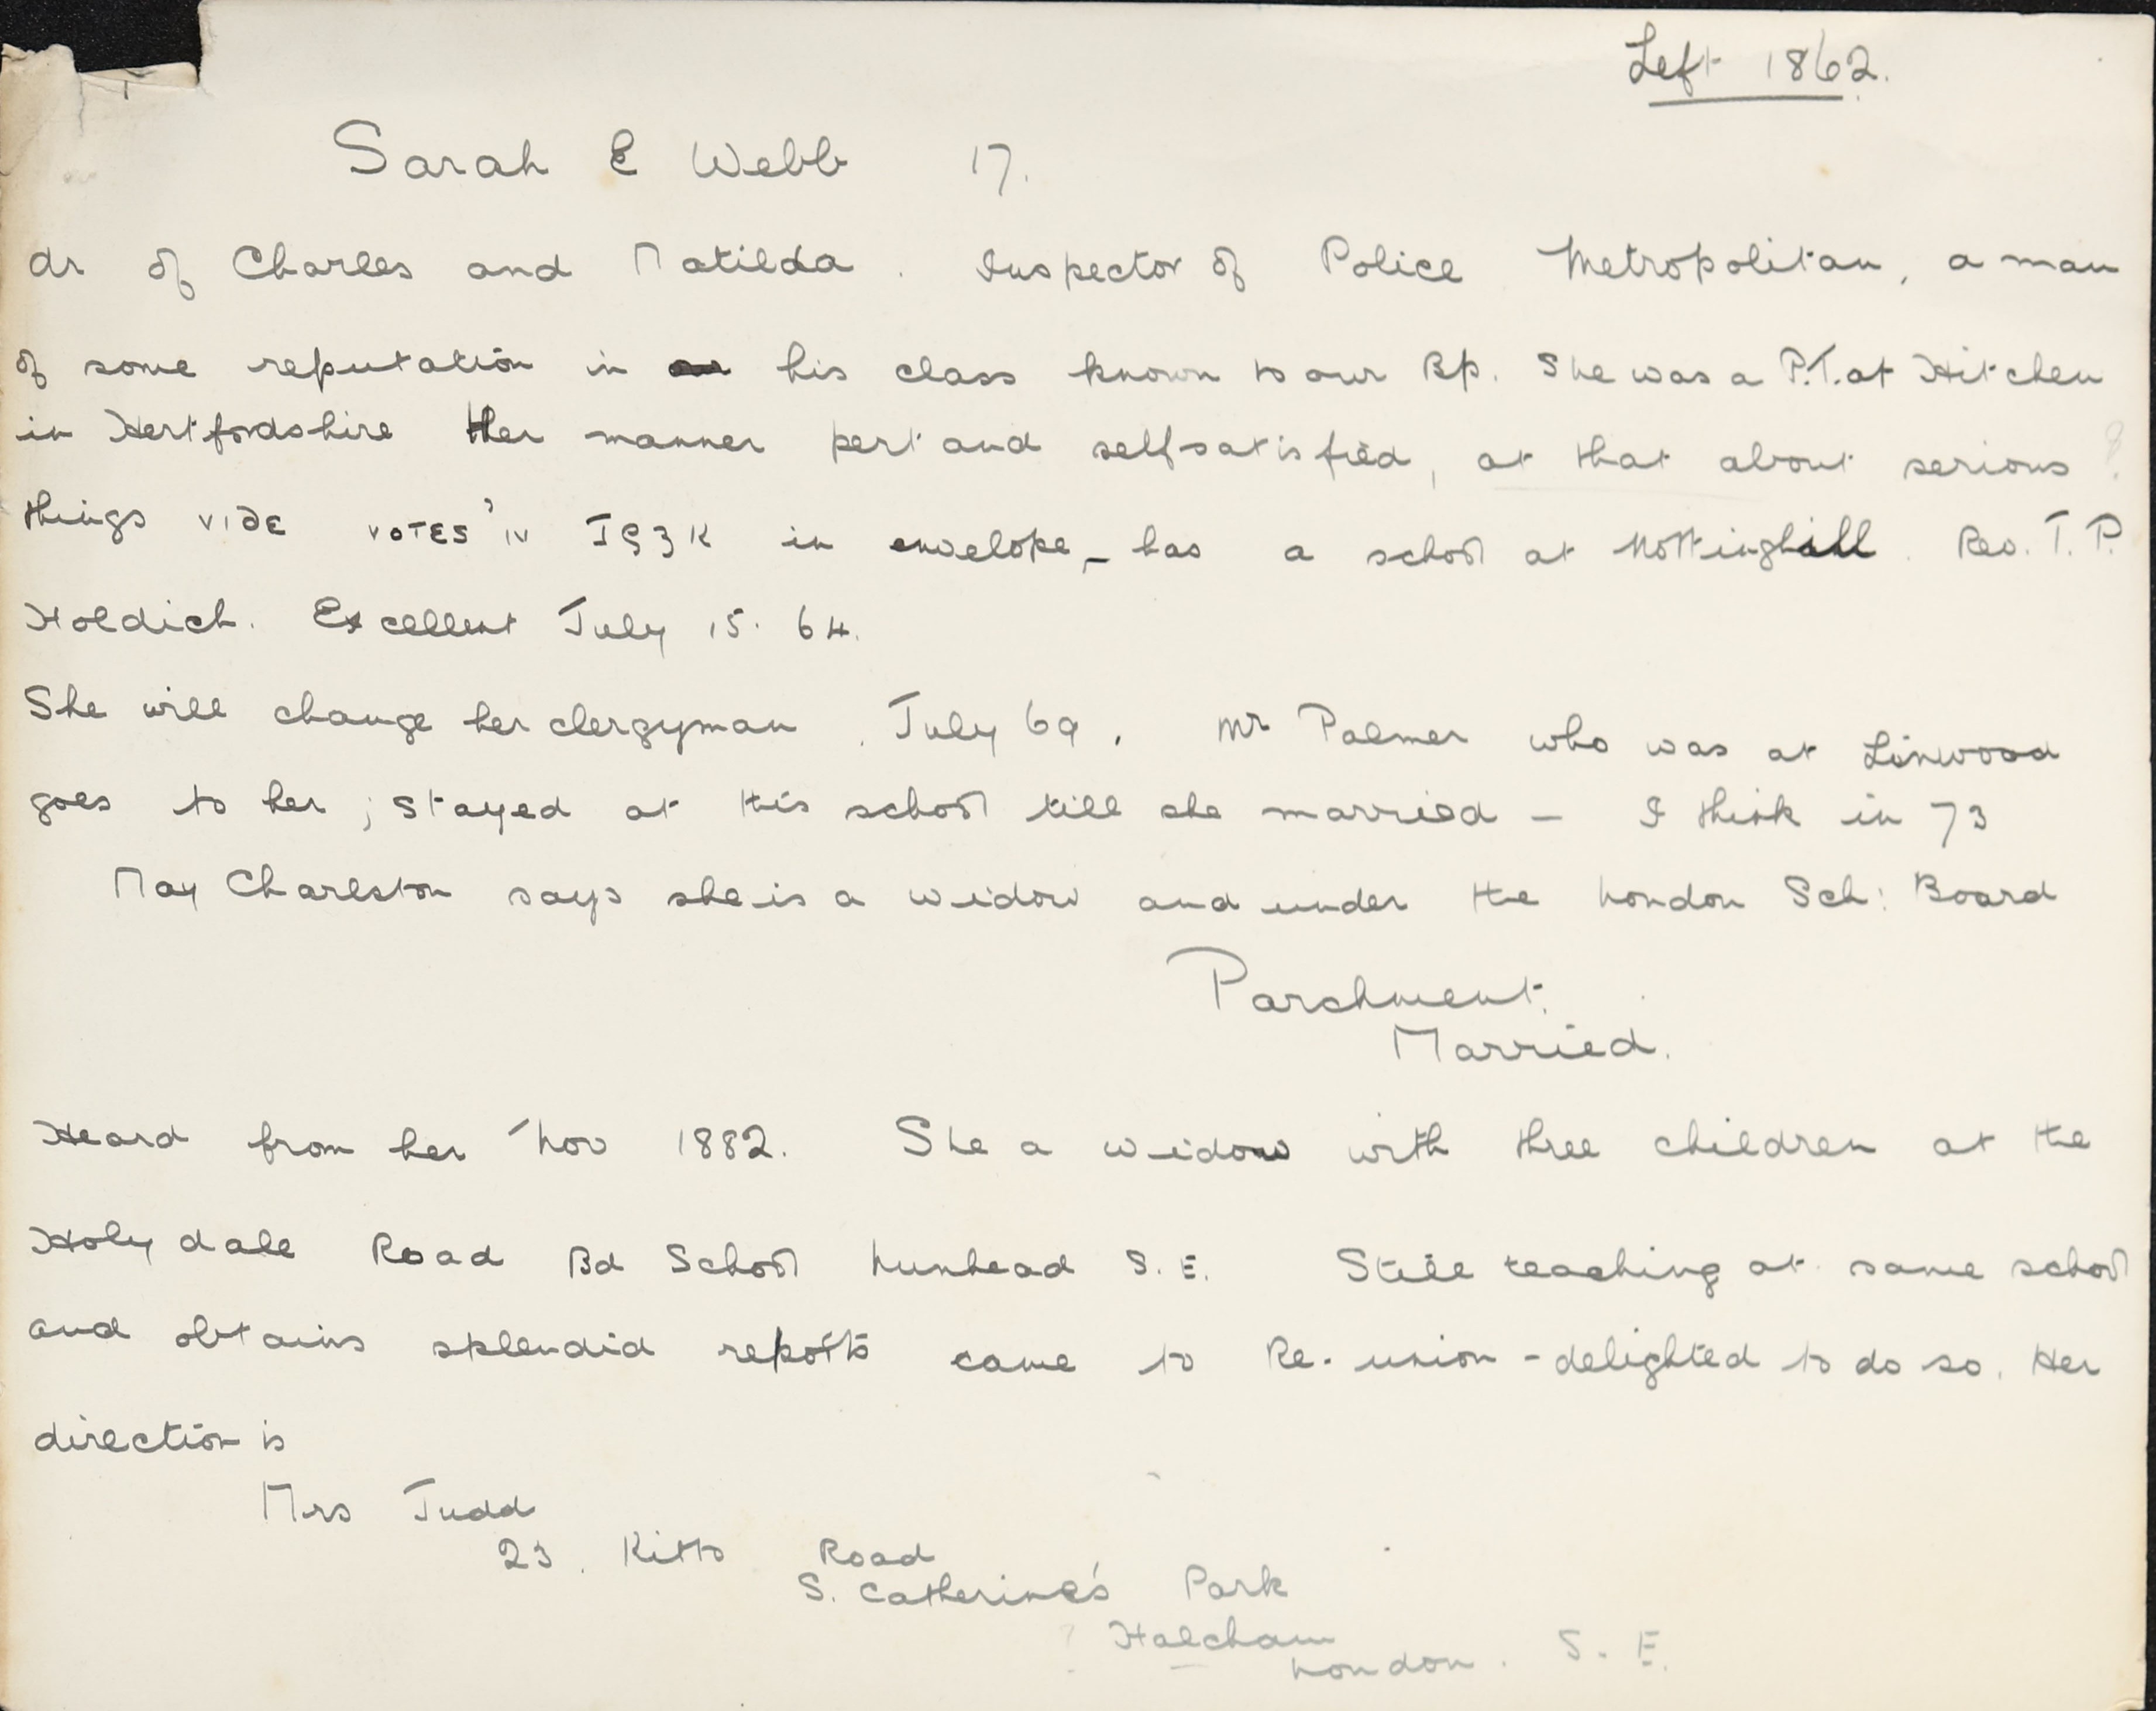 Left 1862.
Sarah E Webb 17.
dr of Charles and Matilda. Inspector of Police Metropolitan, a man
of some reputation in his class known to our Bp. She was a P.T. at Hitchen
in Hertfordshire Her manner pert and selfsatisfied, at that about serious ?
things VIDE VOTES' IN in envelope - has a school at Nottinghill. Rev. T. P.
Holdich. Excellent July 15. 64.
She will change her clergyman. July 69. Mr Palmer who was at Linwood
goes to her; stayed at this school till she married - I think in 73
May Charlston says she is a widow and under the London Sch: Board
Parchment.
Married.
Heard from her Nov 1882. She a widow with three children at the
Holydale Road Bd School Nunhead S.E. Still teaching at same school
and obtains splendid reports came to Re-union - delighted to do so. Her
direction is
Mrs Judd
23. Kitto Road
S. Catherine's Park
? Halcham
London. S. E.